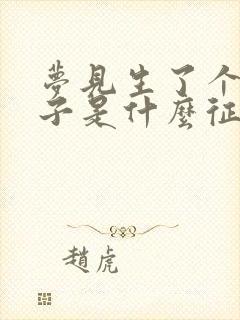 夢見生了个
子是什麼征
趙虎